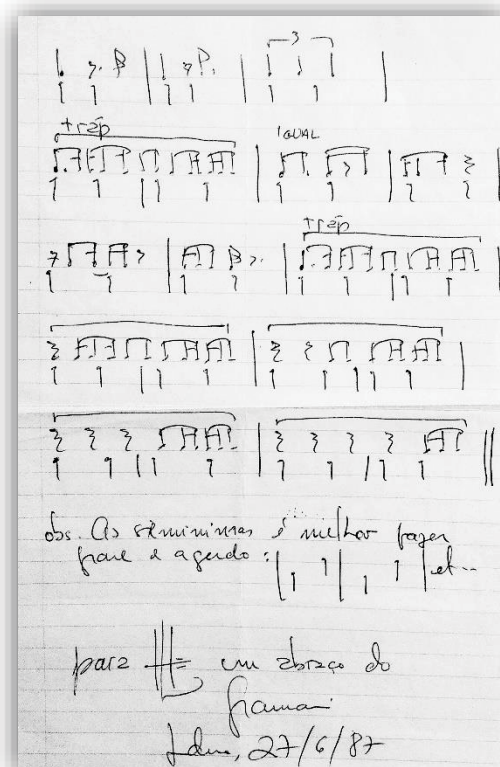 3
+ ráp
IGUAL
+ ráp
obs. As semínimas é melhor fazer
grave e agudo: et...
para um abraço do
Gramani
27/6/87